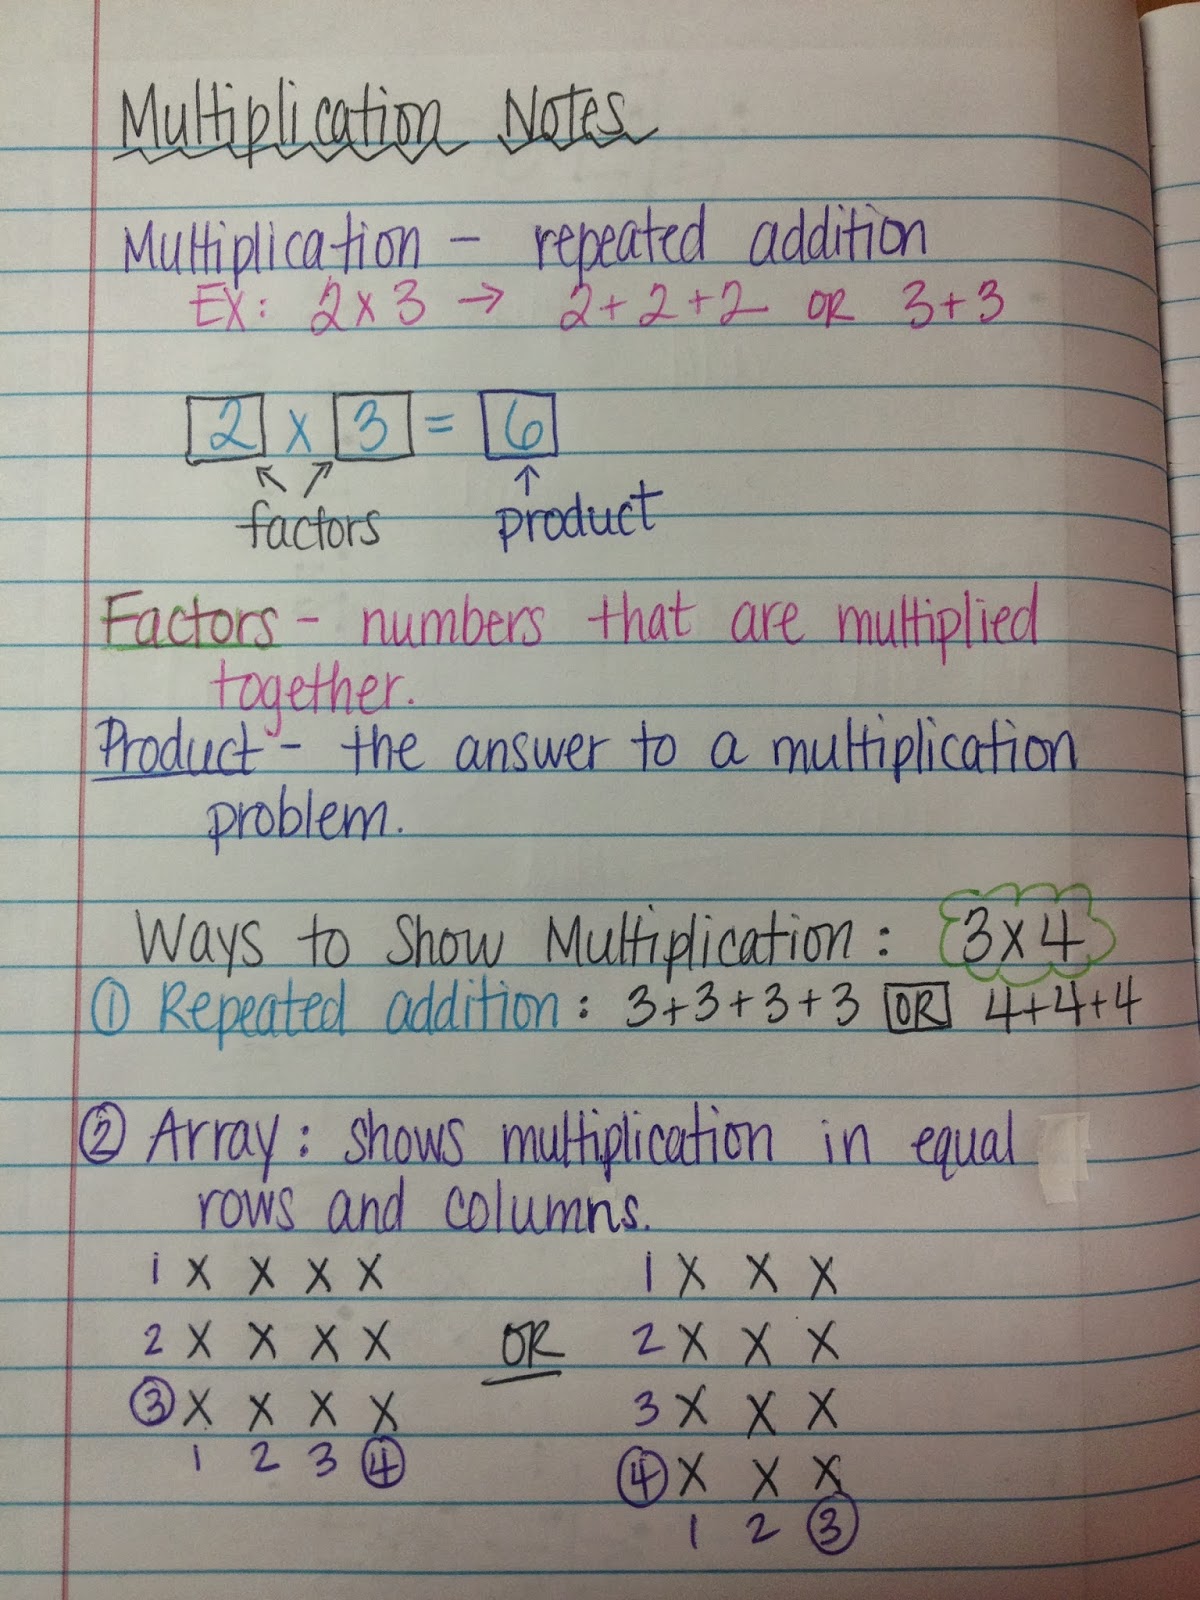 Multiplication Notes
Multiplication - repeated addition
EX: 2 x 3 → 2+2+2 OR 3+3
2 x 3 = 6
factors product
Factors - numbers that are multiplied
together.
Product - the answer to a multiplication
problem.
Ways to Show Multiplication: 3x4
① Repeated addition: 3+3+3+3 OR 4+4+4
② Array: shows multiplication in equal
rows and columns.
1 X X X X 1 X X X
2 X X X X OR 2 X X X
③ X X X X 3 X X X
1 2 3 ④ ④ X X X
1 2 ③